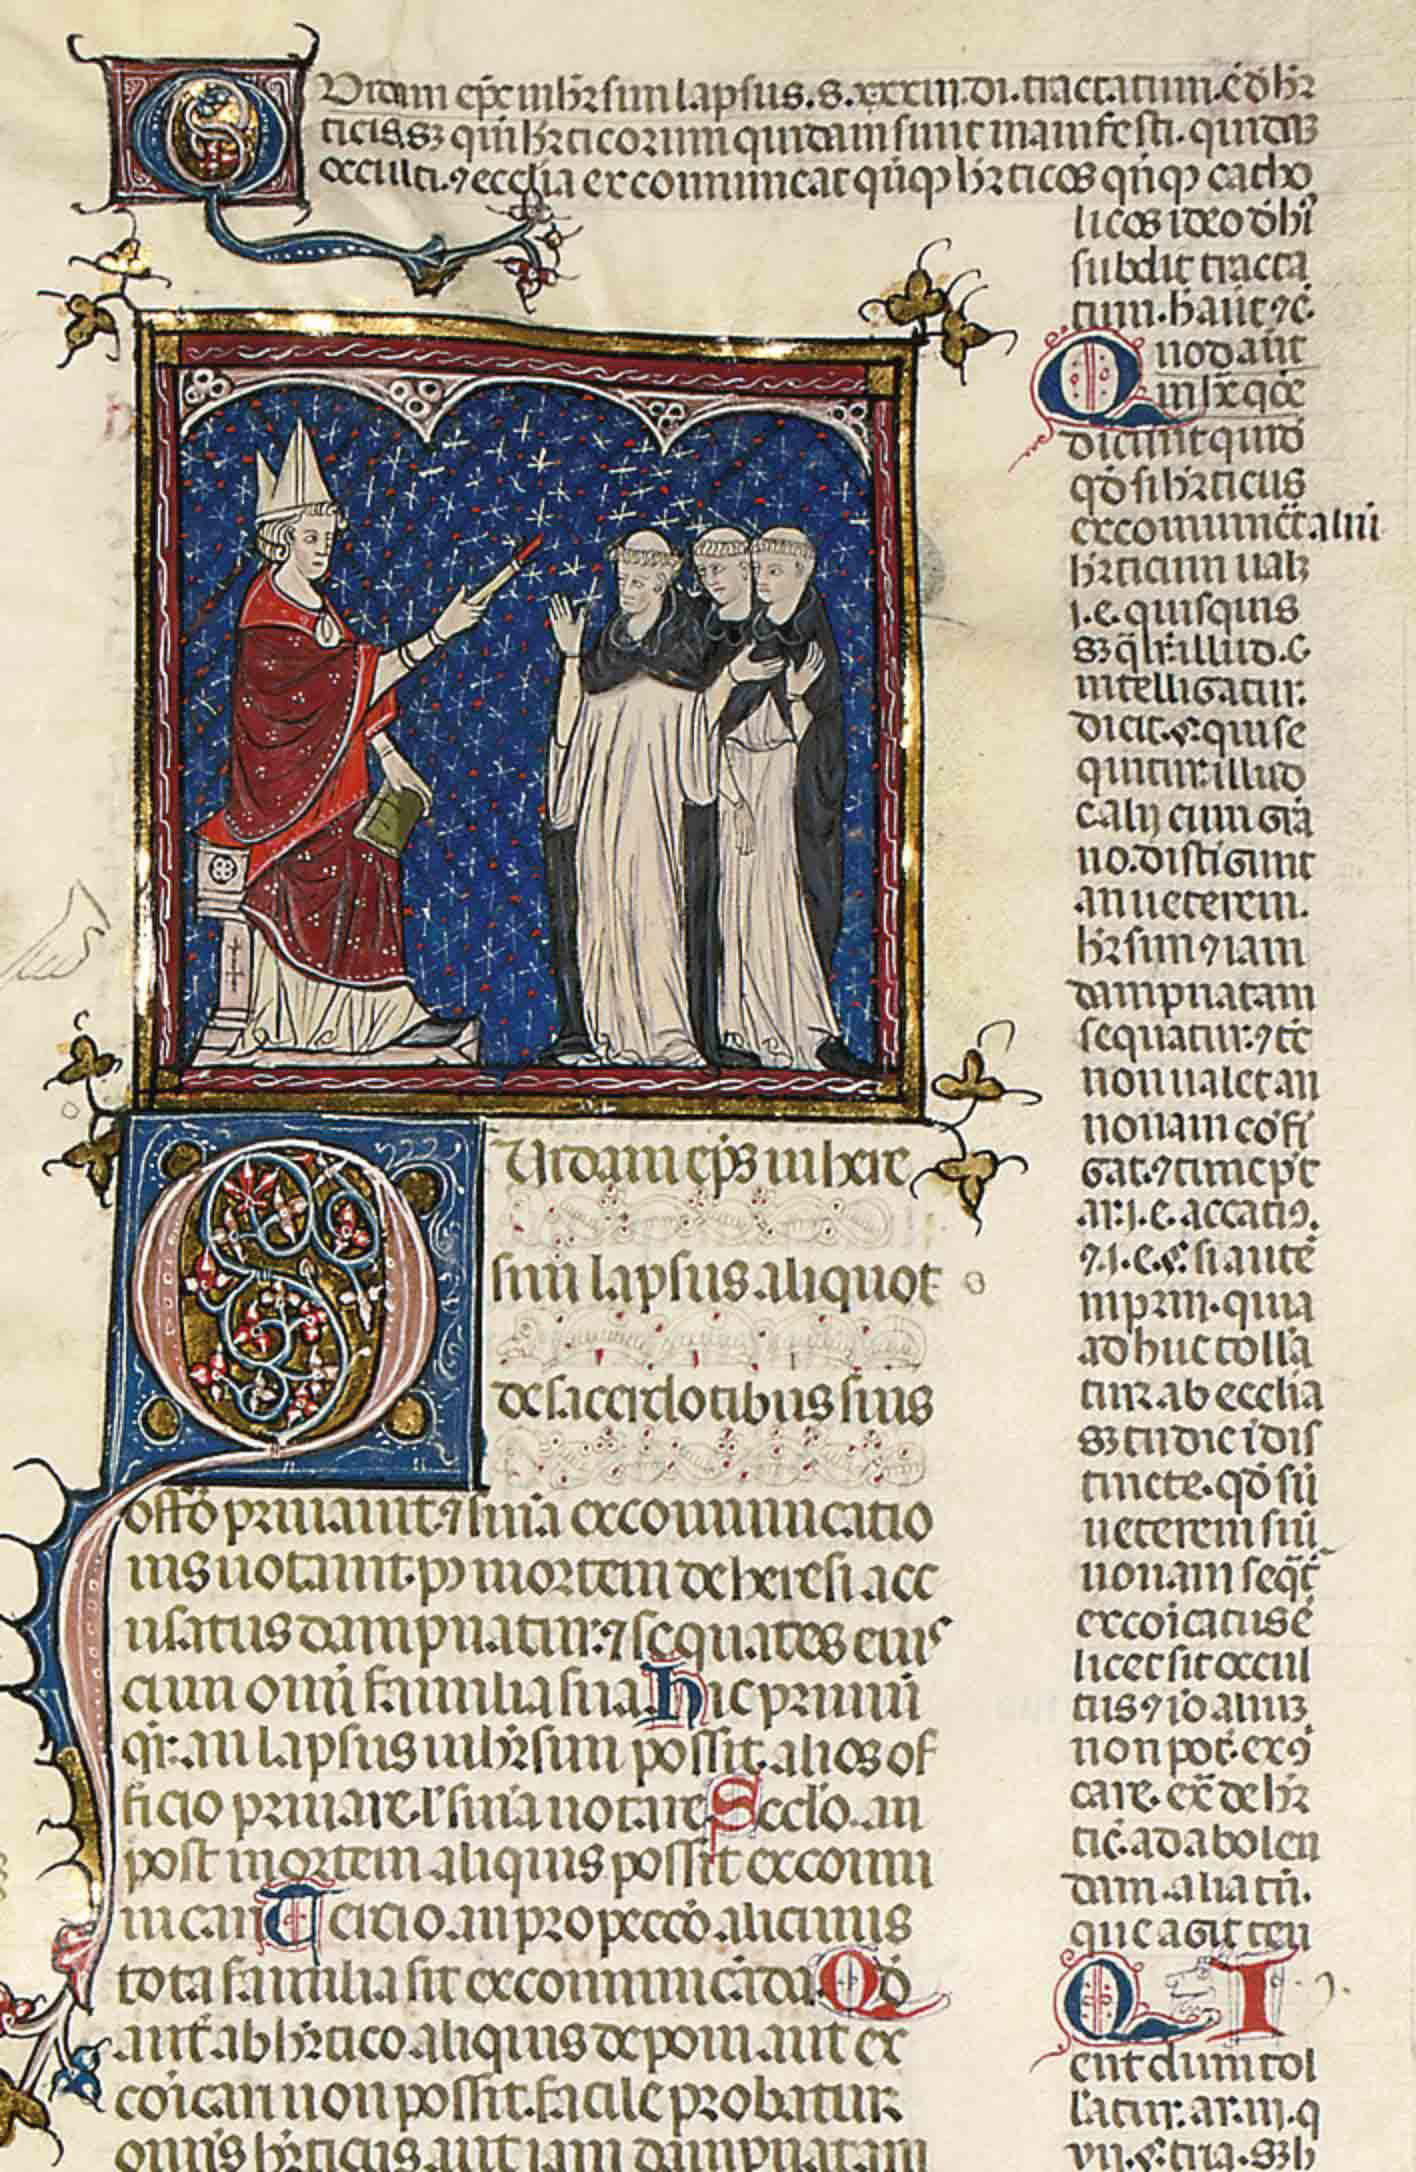 Vidam ep̄c in hr̄sim lapsus. s. xxxiii. di. tractatum. ē d' hr̄
ticis. sꝫ qm̄ hr̄ticorum quidam sunt manifesti. quidā
occulti. ⁊ ecclīa excommunicat qn̄qꝫ hr̄ticos qn̄qꝫ catho
licos ideo d' hī
subdit tracta
tum. h̄ aut̄ ⁊c̄.
Quod aut̄
in
dicunt quid
qđ si hr̄ticus
excomunicet aliū
hr̄ticum
i. e. quisquis
sꝫ illud. c
intelligatur.
dicit. quise
quitur illud
c. alij cum gr̄a
no. distigunt
an ueterem.
hr̄sim ⁊ iam
dampnatam
sequatur. ⁊ tc̄
non ualet an
nouam cōfi
gat. ⁊ tunc
i. e. accatiꝰ.
⁊ i. e. si autē
quia
ad huc tolla
tur ab ecclīa
sꝫ tu dic ī dis
tincte. qđ siū
ueterem siū
nouam seqt̄
excōicatus ē
licet sit occul
tus ⁊ iō aliū
non pot̄ exꝯ
care. ex̄ de hr̄
tic̄. ad abolen
dam. alia cū.
que agit
QI
ent dum tol
lar. iii. q
vii.
Vidam ep̄s in here
sim lapsus aliquot
de sacerdotibus suis
offō priuauit. ⁊ snīa excommunicatio
nis notauit. p̄ mortem de heresi acc
usatus dampnatur. ⁊ seq̄uates eius
cum omī familia sua. Hic primū
qr̄. an lapsus in hr̄sim possit alios of
ficio priuare. l' snīa notare. Scdo. an
post mortem aliquis possit excomu
nicari. Tercio. an pro pecc̄o alicuius
tota familia sit excommunicāda. Qđ
aut̄ ab hr̄tico aliquis deponi aut ex
cōicari non possit. facile probatur
omnis hr̄ticus aut iam dampnatam